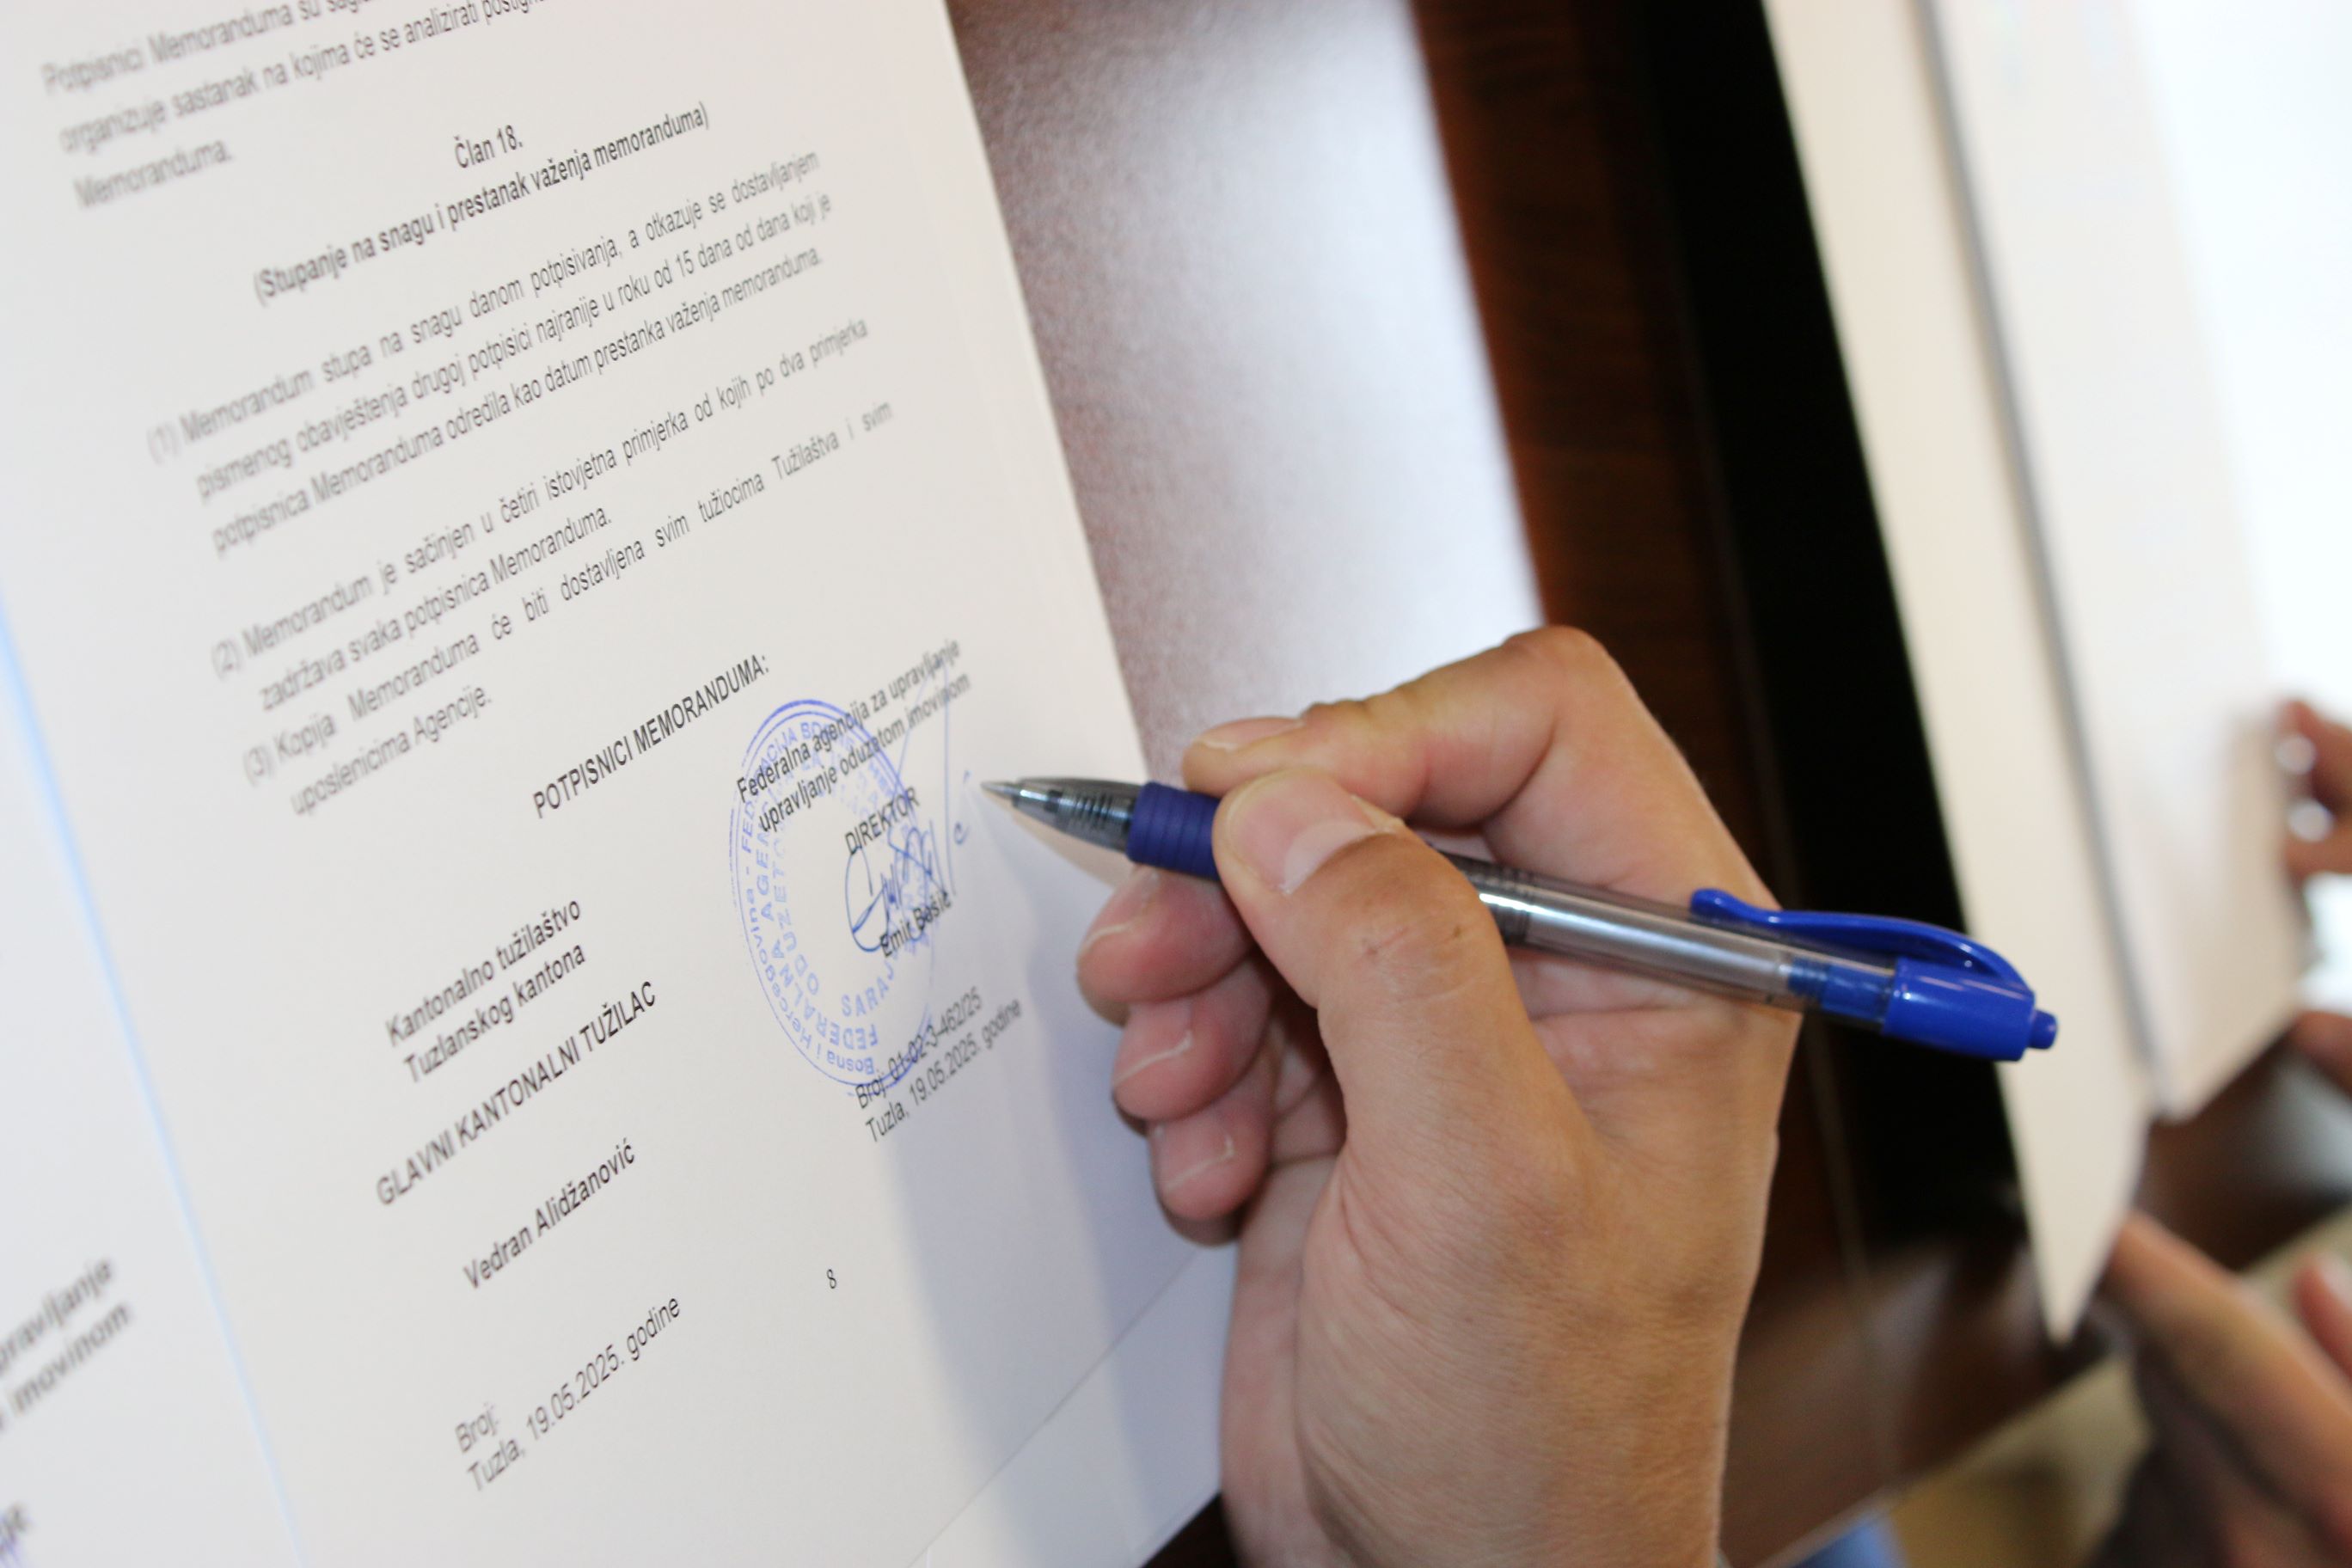 Potpisnici Memoranduma su
organizuje sastanak na kojima će se analizirati
Memoranduma.
Član 18.
(Stupanje na snagu i prestanak važenja memoranduma)
(1) Memorandum stupa na snagu danom potpisivanja, a otkazuje se dostavljanjem
pismenog obavještenja drugoj potpisici najranije u roku od 15 dana od dana koji je
potpisnica Memoranduma odredila kao datum prestanka važenja memoranduma.
(2) Memorandum je sačinjen u četiri istovjetna primjerka od kojih po dva primjerka
zadržava svaka potpisnica Memoranduma.
(3) Kopija Memoranduma će biti dostavljena svim tužiocima Tužilaštva i svim
uposlenicima Agencije.
POTPISNICI MEMORANDUMA:
Kantonalno tužilaštvo
Tuzlanskog kantona
GLAVNI KANTONALNI TUŽILAC
Vedran Alidžanović
Broj:
Tuzla, 19.05.2025. godine
Federalna agencija za upravljanje
upravljanje oduzetom imovinom
DIREKTOR
Emir Bašić
Broj: 01-02-3-462/25
Tuzla, 19.05.2025. godine
8
imovinom